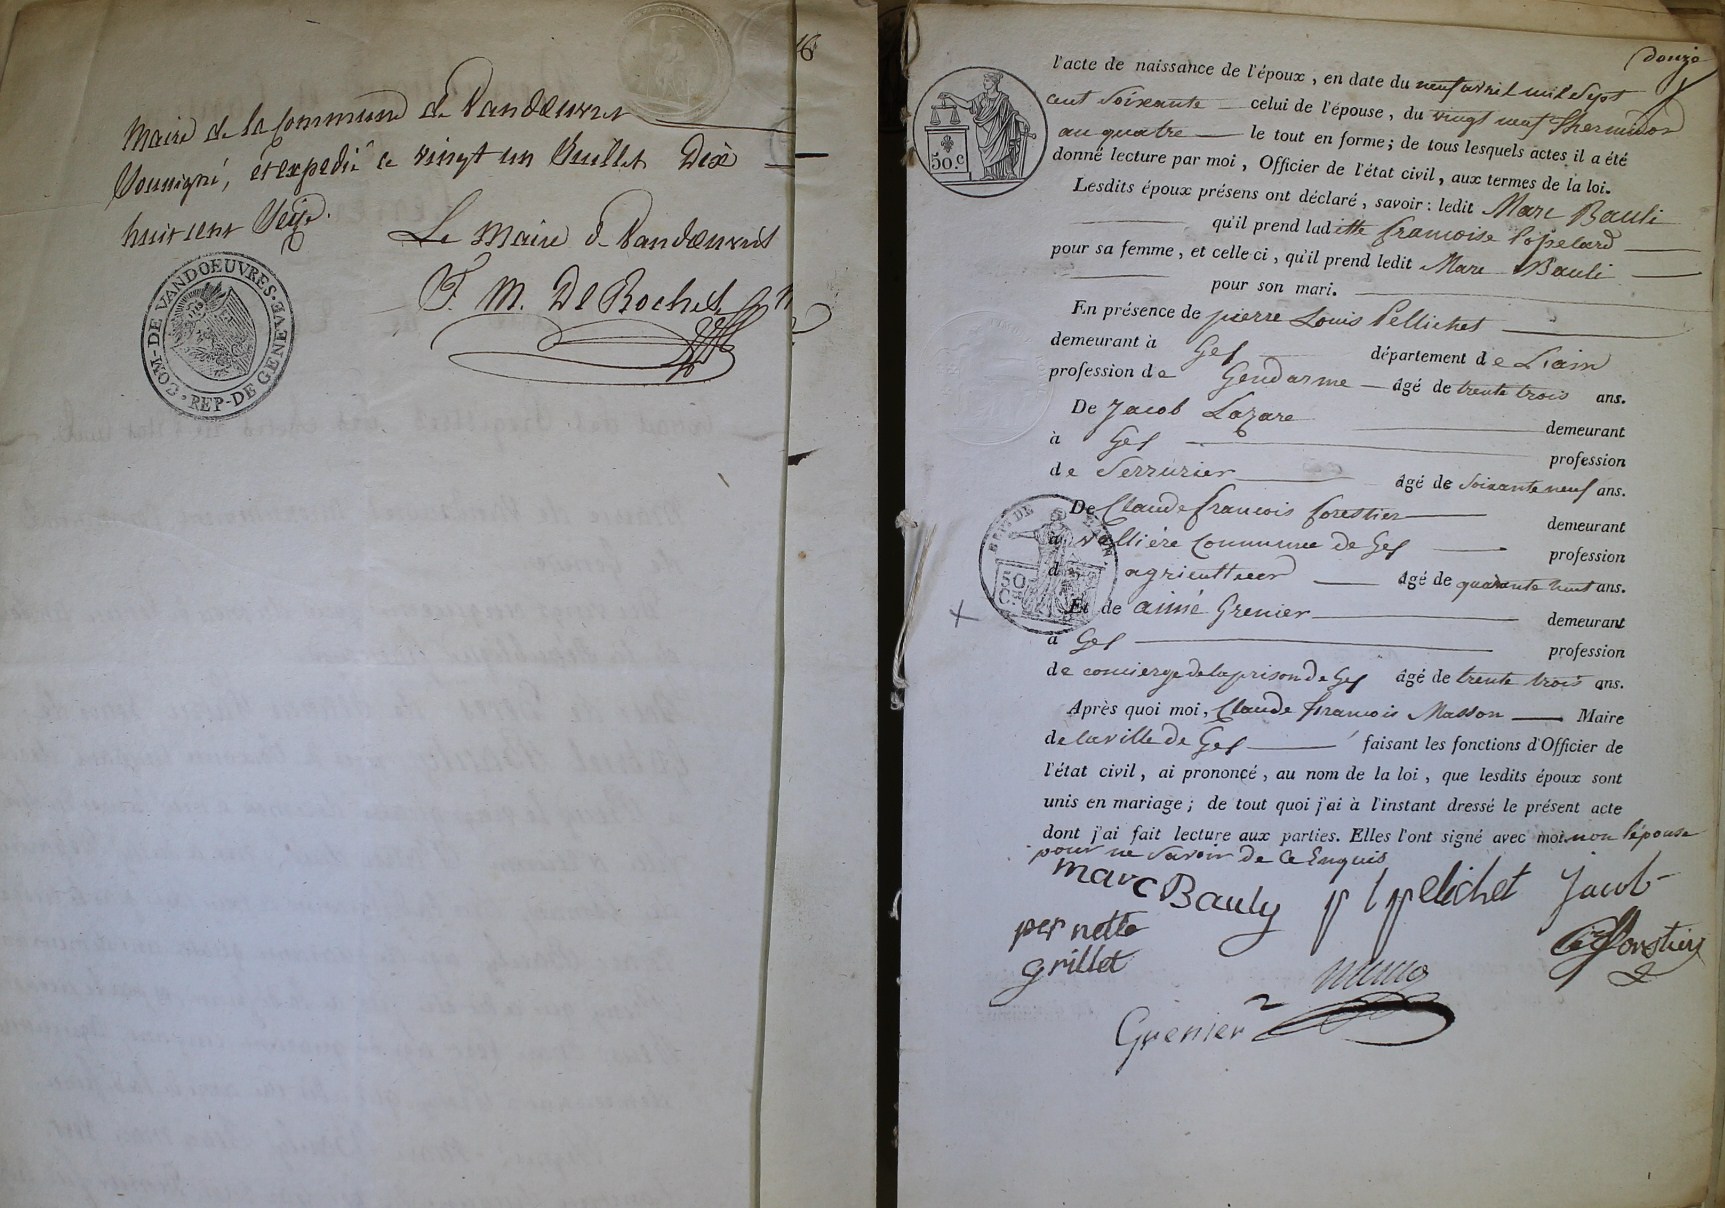 maire de la Commune de Vandœuvres
Soussigné, et expedié ce vingt un Juillet Dix
huit cent Seize.
Le Maire de Vandœuvres
F. M. De Rochet
COM-DE VANDOEUVRES. REP-DE GENEVE
16
douze
l'acte de naissance de l'époux, en date du neuf avril mil Sept
cent Soixante celui de l'épouse, du vingt neuf Thermidor
an quatre le tout en forme; de tous lesquels actes il a été
donné lecture par moi, Officier de l'état civil, aux termes de la loi.
50.c
Lesdits époux présens ont déclaré, savoir: ledit Marc Bauli
qu'il prend laditte francoise Copelard
pour sa femme, et celle ci, qu'il prend ledit Marc Bauli
pour son mari.
En présence de pierre Louis Pellichet
demeurant à Gex département de L'ain
profession de Gendarme âgé de trente trois ans.
De Jacob Lazare demeurant
à Gex profession
de Serrurier âgé de Soixante neuf ans.
De Claude francois forestier demeurant
à valliere Commune de Gex profession
de agriculteur âgé de quarante huit ans.
50 C.
Et de aimé Grenier demeurant
à Gex profession
de concierge de la prison de Gex âgé de trente trois ans.
Après quoi moi, Claude francois Masson Maire
de la ville de Gex faisant les fonctions d'Officier de
l'état civil, ai prononcé, au nom de la loi, que lesdits époux sont
unis en mariage; de tout quoi j'ai à l'instant dressé le présent acte
dont j'ai fait lecture aux parties. Elles l'ont signé avec moi non l'épouse
pour ne Savoir de ce Enquis
marc Bauly p l pelichet Jacob
per nette forstier
grillet
Grenier